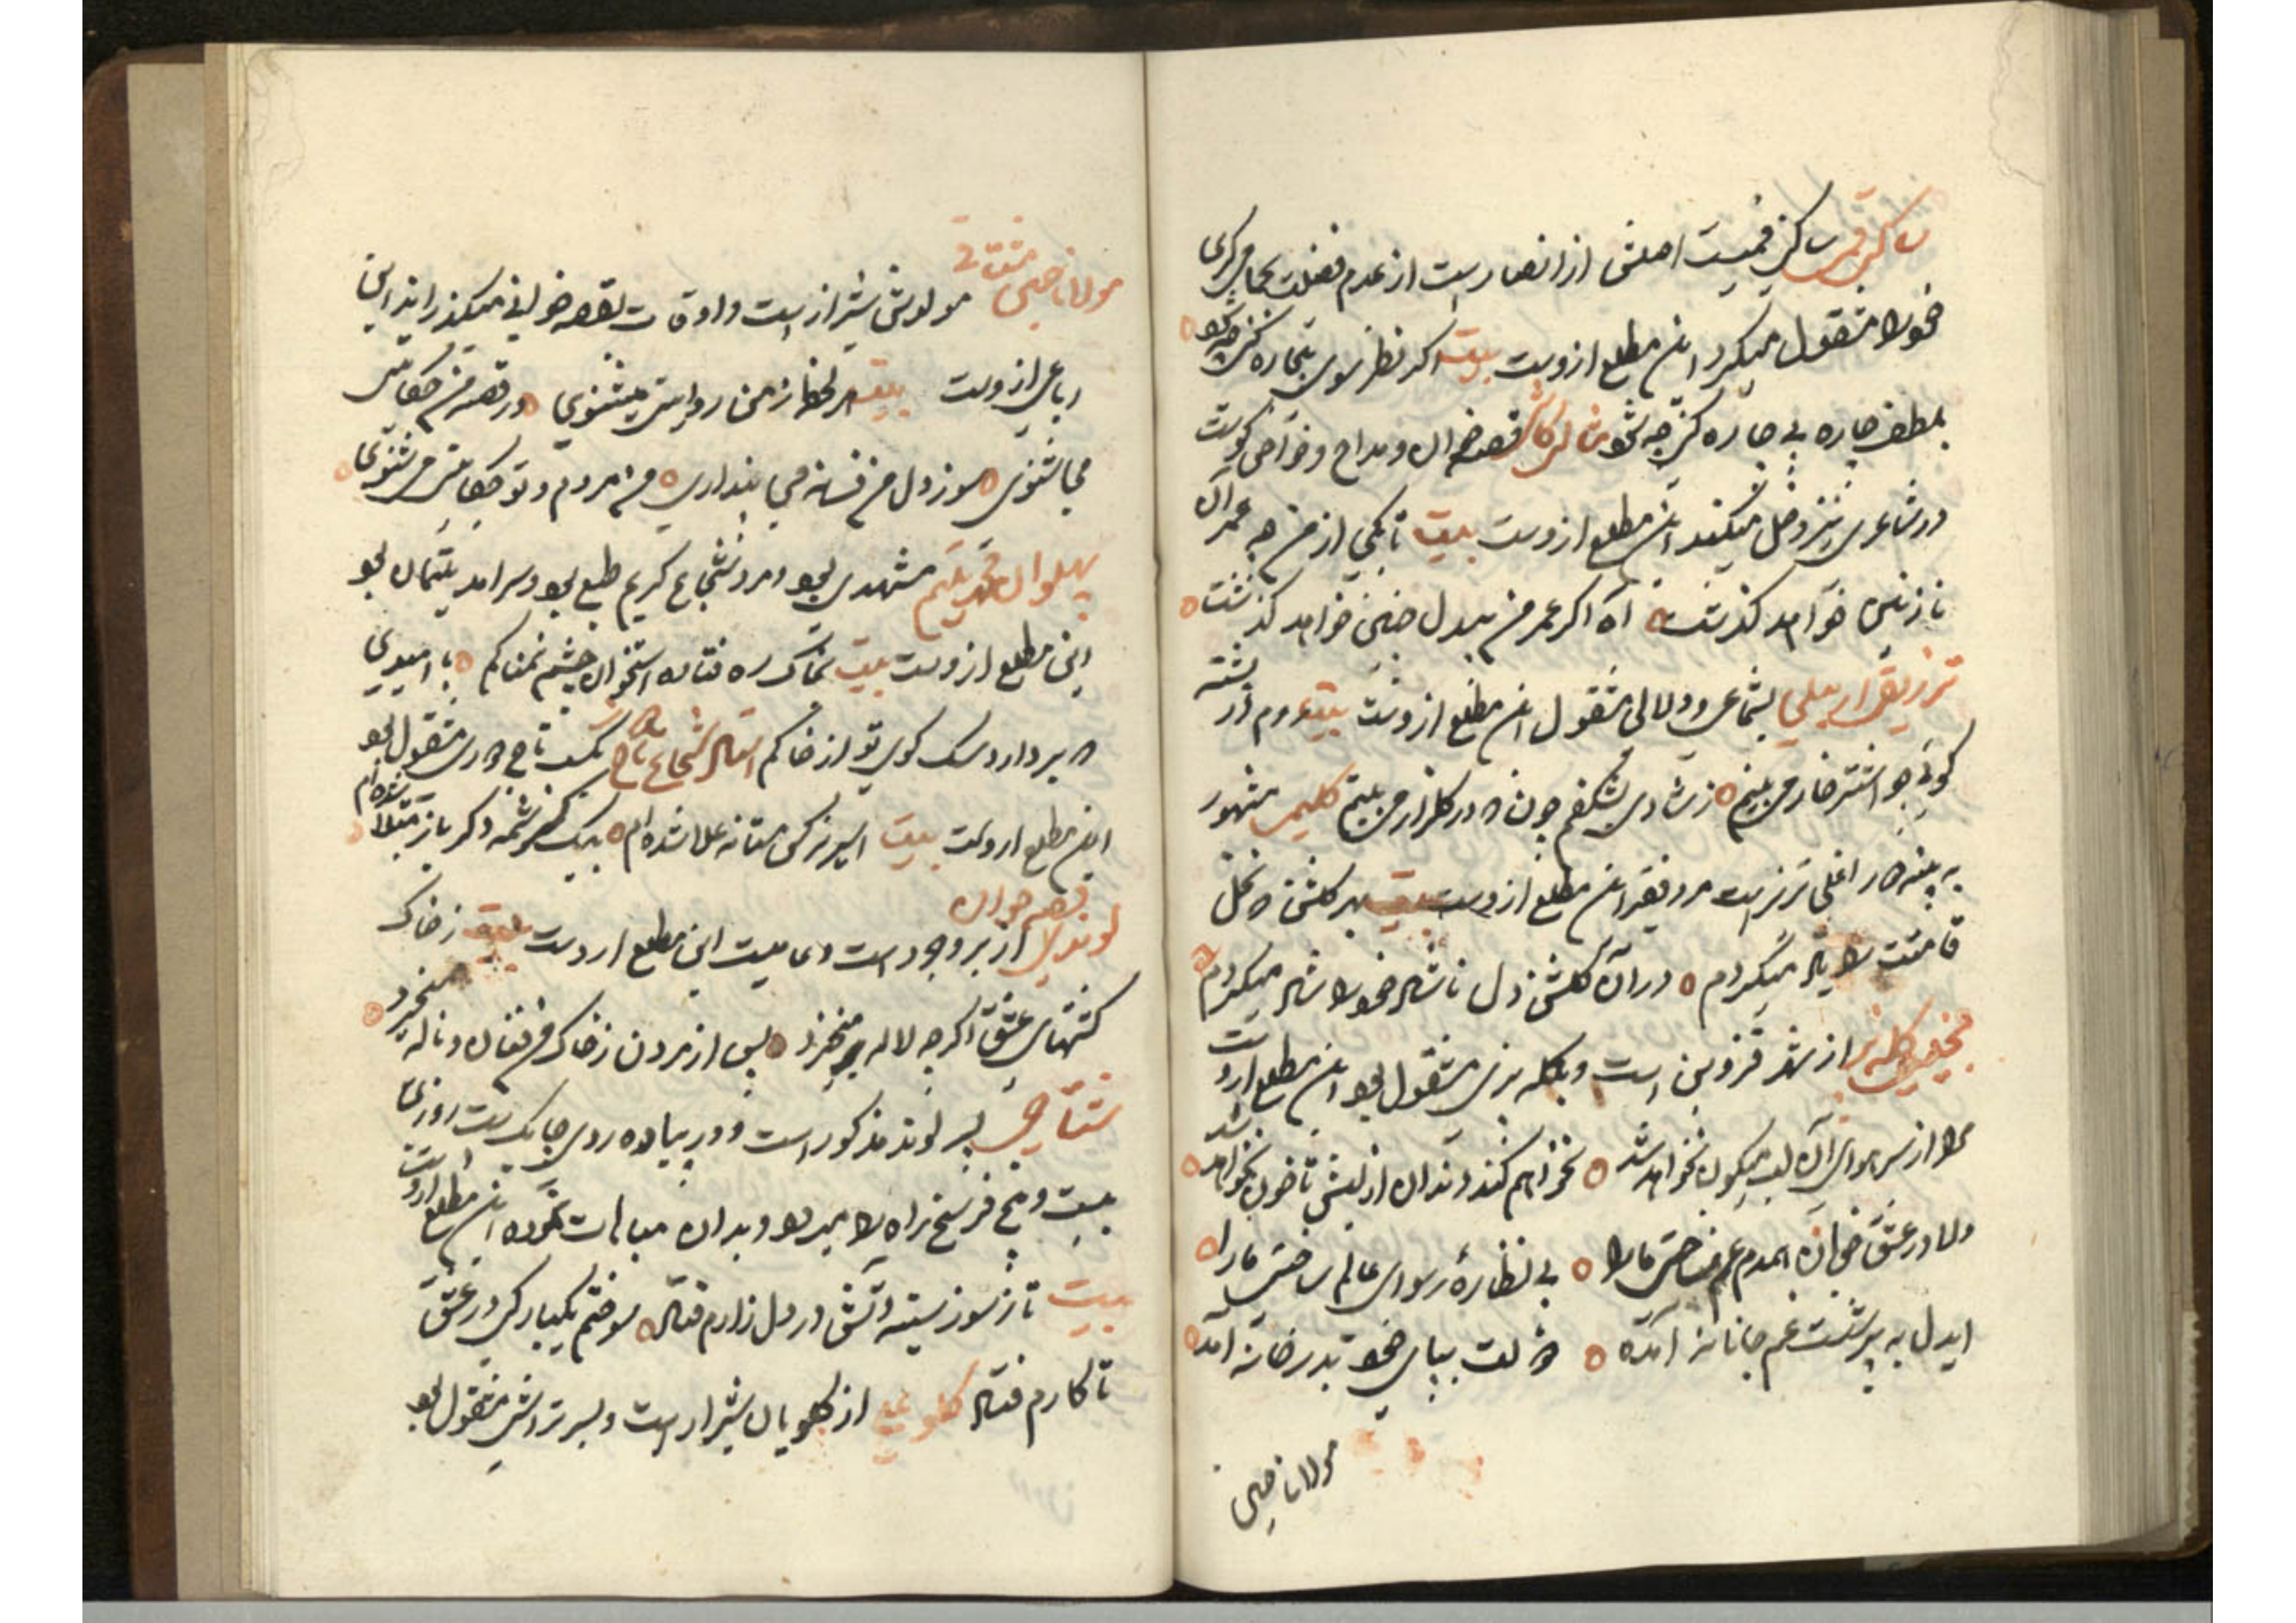 ساکنی قمی ساکن قمیست اصلش از انصارست از عدم فضلت بکتابه کری
خود را مشغول میکرد این مطلع ازوست بیت اگر نظر سوی بیچاره کنی چه شود
بلطف چاره بی چاره کنی چه شود قصه خوان و مداح و خواص کویست
در شاعری نیز دخل میکند این مطلع ازوست بیت تا بکی از من چه عمر آن
نازنین خواهد کذشت آه اکر عمر من بیدل چنین خواهد کذشت
تزریقی اردبیلی بشاعری و دلالی مشغول این مطلع ازوست بیت دوم در رشته
کوئی چو اشتر خار می بینم ز شادی بشکفم چون در کلزار می بینم کلیمی مشهور
به پنبه دار اغلی تبریزست مرد فقیر این مطلع ازوست بیت بهر کلشن که نخل
قامتت را یاد میکردم در آن کلشن دل ناشاد خود را شاد میکردم
از شهر قزوین است و بکله پزی مشغول بود این مطلع ازوست
مرا از سر هوای آن لب میکون نخواهد شد نخواهم کند دندان از لبش تا خون نخواهد شد
دلا در عشق خوبان همدم غم ساختی ما را بی نظاره رسوای عالم ساختی ما را
ایدل به پرسشت غم جانانه آمده دولت بپای خود بدر خانه آمده
مولانا
مولانا مولدش شیراز است و اوقات بقصه خوانی میکذراند این
رباعی ازوست بیت هر لحظه ز من روایتی میشنوی در قصه من حکایتی
میشنوی سوز دل من فسانه می پنداری من مردم و تو حکایتی میشنوی
پهلوان محمد یتیم مشهدی بود و مرد شجاع کریم طبع بود و سرآمد یتیمان بود
این مطلع ازوست بیت بخاک ره فتاده استخوان چشم نمناکم با امیدی
که بردارد سک کوی تو از خاکم استاد شجاع مشغول بود
این مطلع ازوست بیت اسیر نرکس مستانه بیک کرشمه دکر باز مبتلا شده ام
لوندی قصه خوان از بروجرد است و عامیست این مطلع ازوست بیت ز خاک
کشتهای عشق اکرچه لاله میخیزد پس از مردن ز خاک من فغان و ناله میخیزد
پسر لوند مذکور است و در پیاده روی چابک است روزی
بیست و پنج فرسخ راه را میرود و بدان مباهات نموده این مطلع ازوست
بیت تا ز سوز سینه آتش در دل زارم فتاد سوختم یکبارکی در عشق
تا کارم فتاد کلو علی از کلویان شیراز است و بسرتراشی مشغول بود